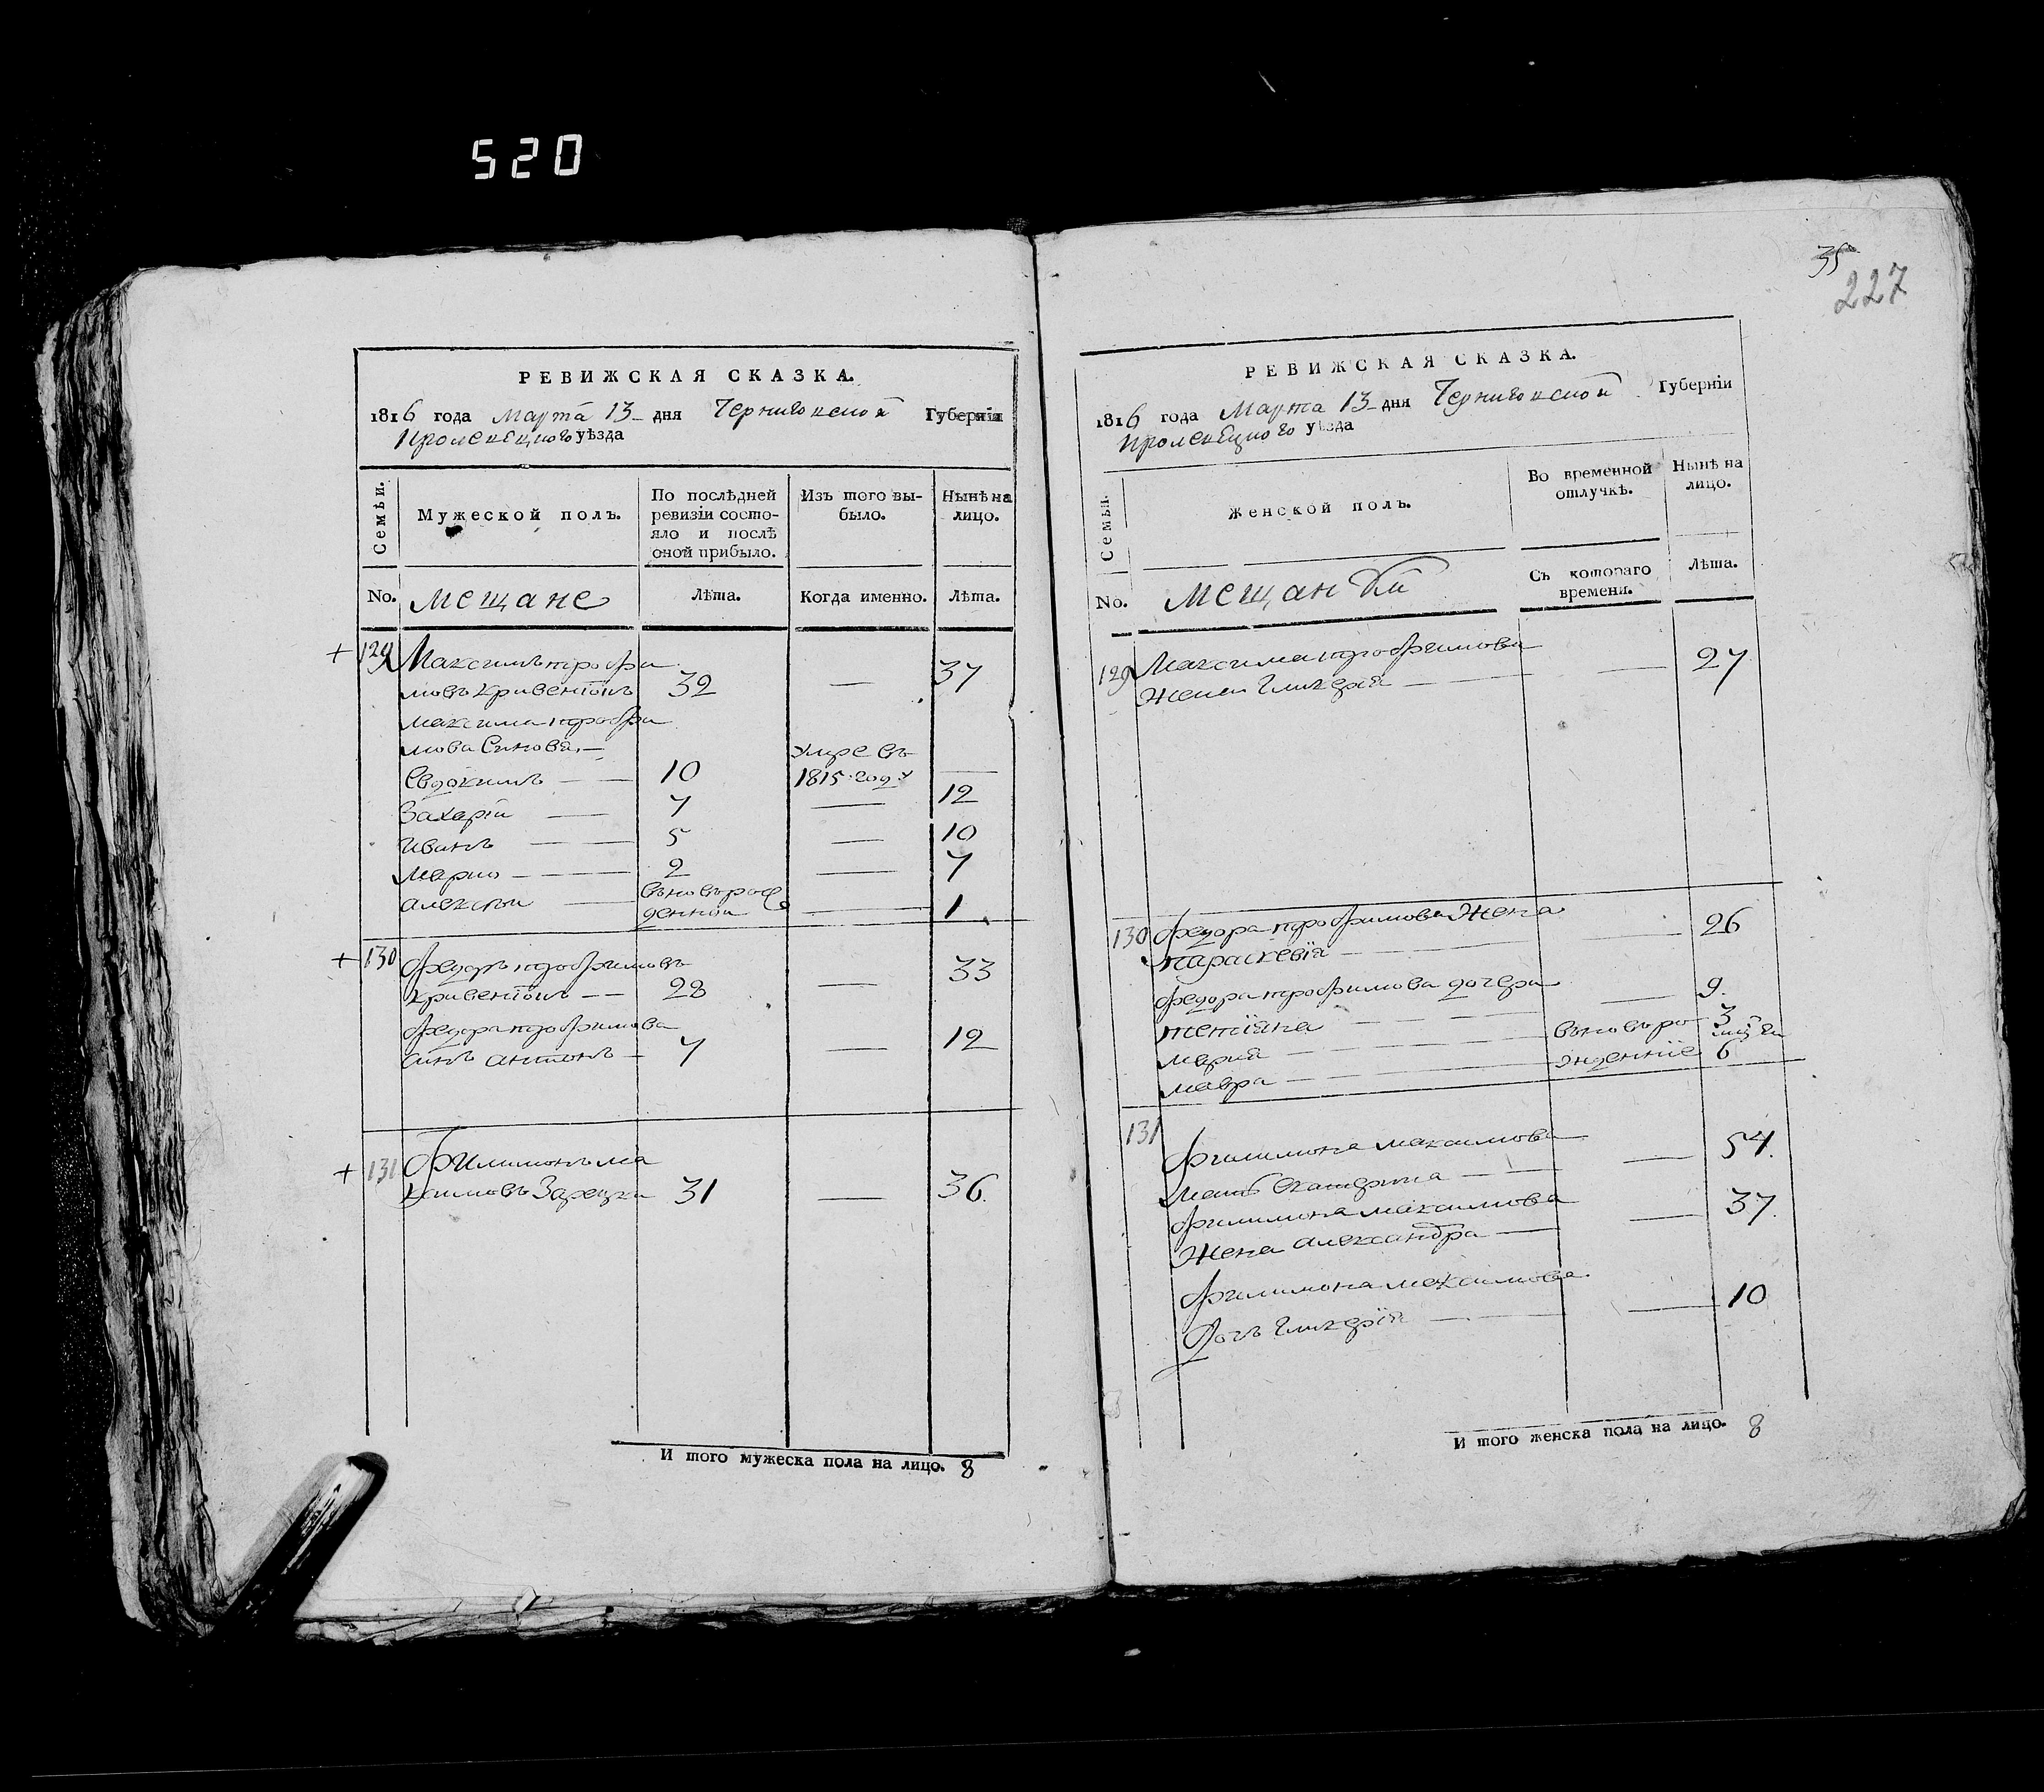 520
РЕВИЖСКАЯ СКАЗКА.
1816 года Марта 13 дня Черниговской Губерніи
Кролевецкого уѣзда
Семьи.
Мужеской полъ.
По послѣдней
ревизіи состо-
яло и послѣ
оной прибыло.
Изъ того вы-
было.
Нынѣ на
лицо.
No.
мещане
Лѣта.
Когда именно.
Лѣта.
+ 129 Максимъ трофи
мовъ Кривенокъ 32 — 37
максима трофи
мова Синовя —
Евдокимъ — — 10 умре въ 1815 году —
Захарій — 7 — 12
Иванъ — — 5 — 10
марко — — 2 — 7
алексѣи — вновърож
денной — 1
+ 130 Федоръ трофимовъ
Кривенокъ — — 28 — 33
Федора трофимова
синъ антонъ — 7 — 12
+ 131 Филимонъ ма
ксимовъ 31 — 36.
И того мужеска пола на лицо. 8
35
227
РЕВИЖСКАЯ СКАЗКА.
1816 года Марта 13 дня Черниговской Губерніи
Кролевецкого уѣзда
Семьи.
Женской полъ.
Во временной
отлучкѣ.
Нынѣ на
лицо.
No.
мещанки
Съ котораго
времени.
Лѣта.
129 Максима трофимова
Жена Гликерія — — 27
130 Федора трофимова Жена
параскевія — — 26
Федора трофимова дочери
татіяна — — — 9.
марія — вновъро 3
мавра — жденніе 6
131
Филимона максимова
мать Екатерина — — 54.
Филимона максимова
Жена александра — — 37.
Филимона максимова
Дочъ Гликерія — — 10
И того женска пола на лицо. 8